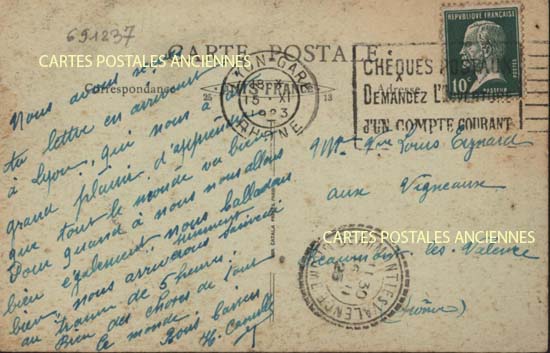 691237
CARTES POSTALES ANCIENNES
CARTE POSTALE
Correspondance
Adresse
REPUBLIQUE FRANÇAISE
10
POSTES
LYON-GARE
15 XI
1923
RHONE
CHÈQUES POSTAUX
DEMANDEZ L'OUVERTURE
D'UN COMPTE COURANT
25
13
Nous avons reçu
ta lettre en arrivant
à Lyon, qui nous a fait
grand plaisir d'apprendre
que tout le monde va bien
Pour quand à nous nous allons
bien également, nous balladons
bien, nous arriverons samedi
au train de 5 heures.
Bien des choses de tout
ce monde. Bons baisers
Camille
Mme Vve Louis Eynard
aux Vigneaux
CARTES POSTALES ANCIENNES
Beaumont les Valence
(Drôme)